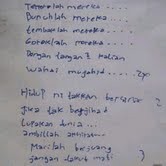 Teroorlah mereka ....
Bunuhlah mereka ....
Lemparlah mereka ....
Gorok lah mereka ....
Dengan tangan2 kalian
Wahai mujahid ..... 2x
Hidup ni takkan bererti
Jika tak berjihad
Lupakan dunia ...
ambillah akhirat ...
Marilah berjuang
jangan tunggu mati
2